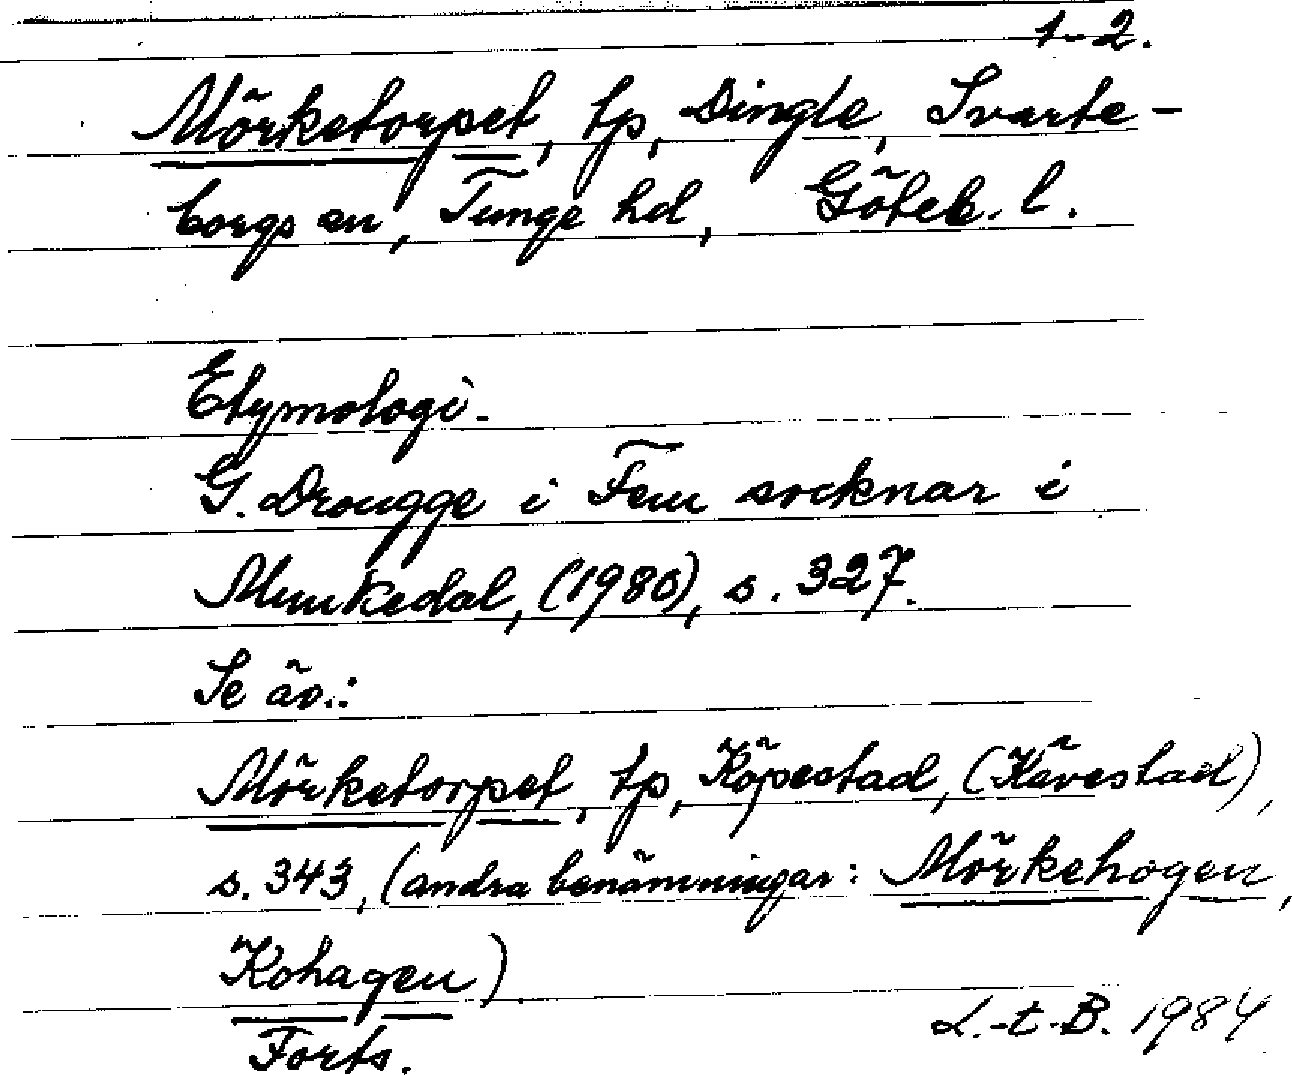 1-2.
Mörketorpet, tp, Dingle, Svarte-
borgs sn, Tunge hd, Göteb. l.
Etymologi.
G. Drougge i Fem socknar i
Munkedal, (1980), s. 327.
Se äv.:
Mörketorpet, tp, Köpestad, (Kävestad),
s. 343, (andra benämningar: Mörkehogen,
Kohagen)
Forts.
L.-t.-B. 1984